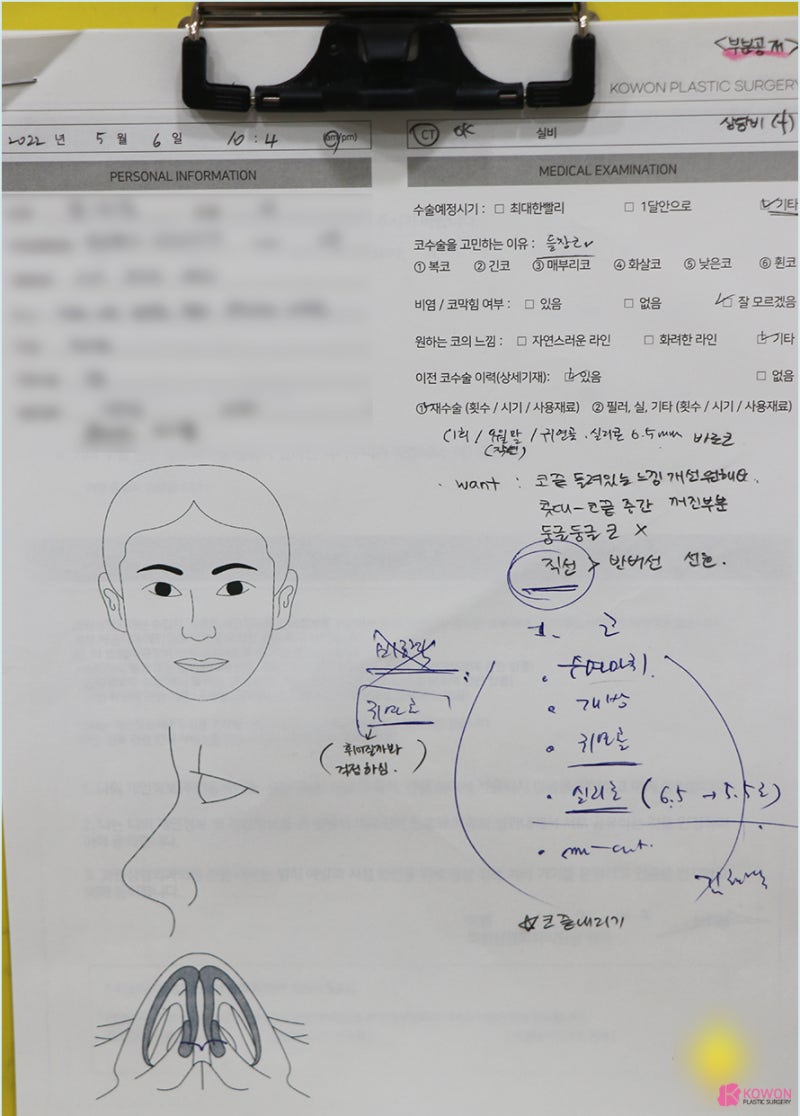 <부분공개>
KOWON PLASTIC SURGERY
2022 년 5 월 6 일 10 : 4 (am/pm)
CT OK 실비 상담비 (4)
PERSONAL INFORMATION
MEDICAL EXAMINATION
수술예정시기 : □ 최대한빨리 □ 1달안으로 □ 기타
코수술을 고민하는 이유 : 들창코
① 복코 ② 긴코 ③ 매부리코 ④ 화살코 ⑤ 낮은코 ⑥ 휜코
비염 / 코막힘 여부 : □ 있음 □ 없음 □ 잘 모르겠음
원하는 코의 느낌 : □ 자연스러운 라인 □ 화려한 라인 □ 기타
이전 코수술 이력(상세기재): □ 있음 □ 없음
① 재수술 (횟수 / 시기 / 사용재료) ② 필러, 실, 기타 (횟수 / 시기 / 사용재료)
(1회 / 9월말 / 귀연골. 실리콘 6.5mm 바로코
(작년)
· want : 코끝 들려있는 느낌 개선원해요.
콧대-코끝 중간 꺼진부분
둥글둥글 코 X
직선 > 반버선 선호.
1. 코
· 수면마취.
· 개방
· 귀연골
· 실리콘 (6.5 → 5.5로)
· m-cut.
귀연골
(휘어질까봐
걱정하심.)
☆코끝내리기
KOWON
PLASTIC SURGERY